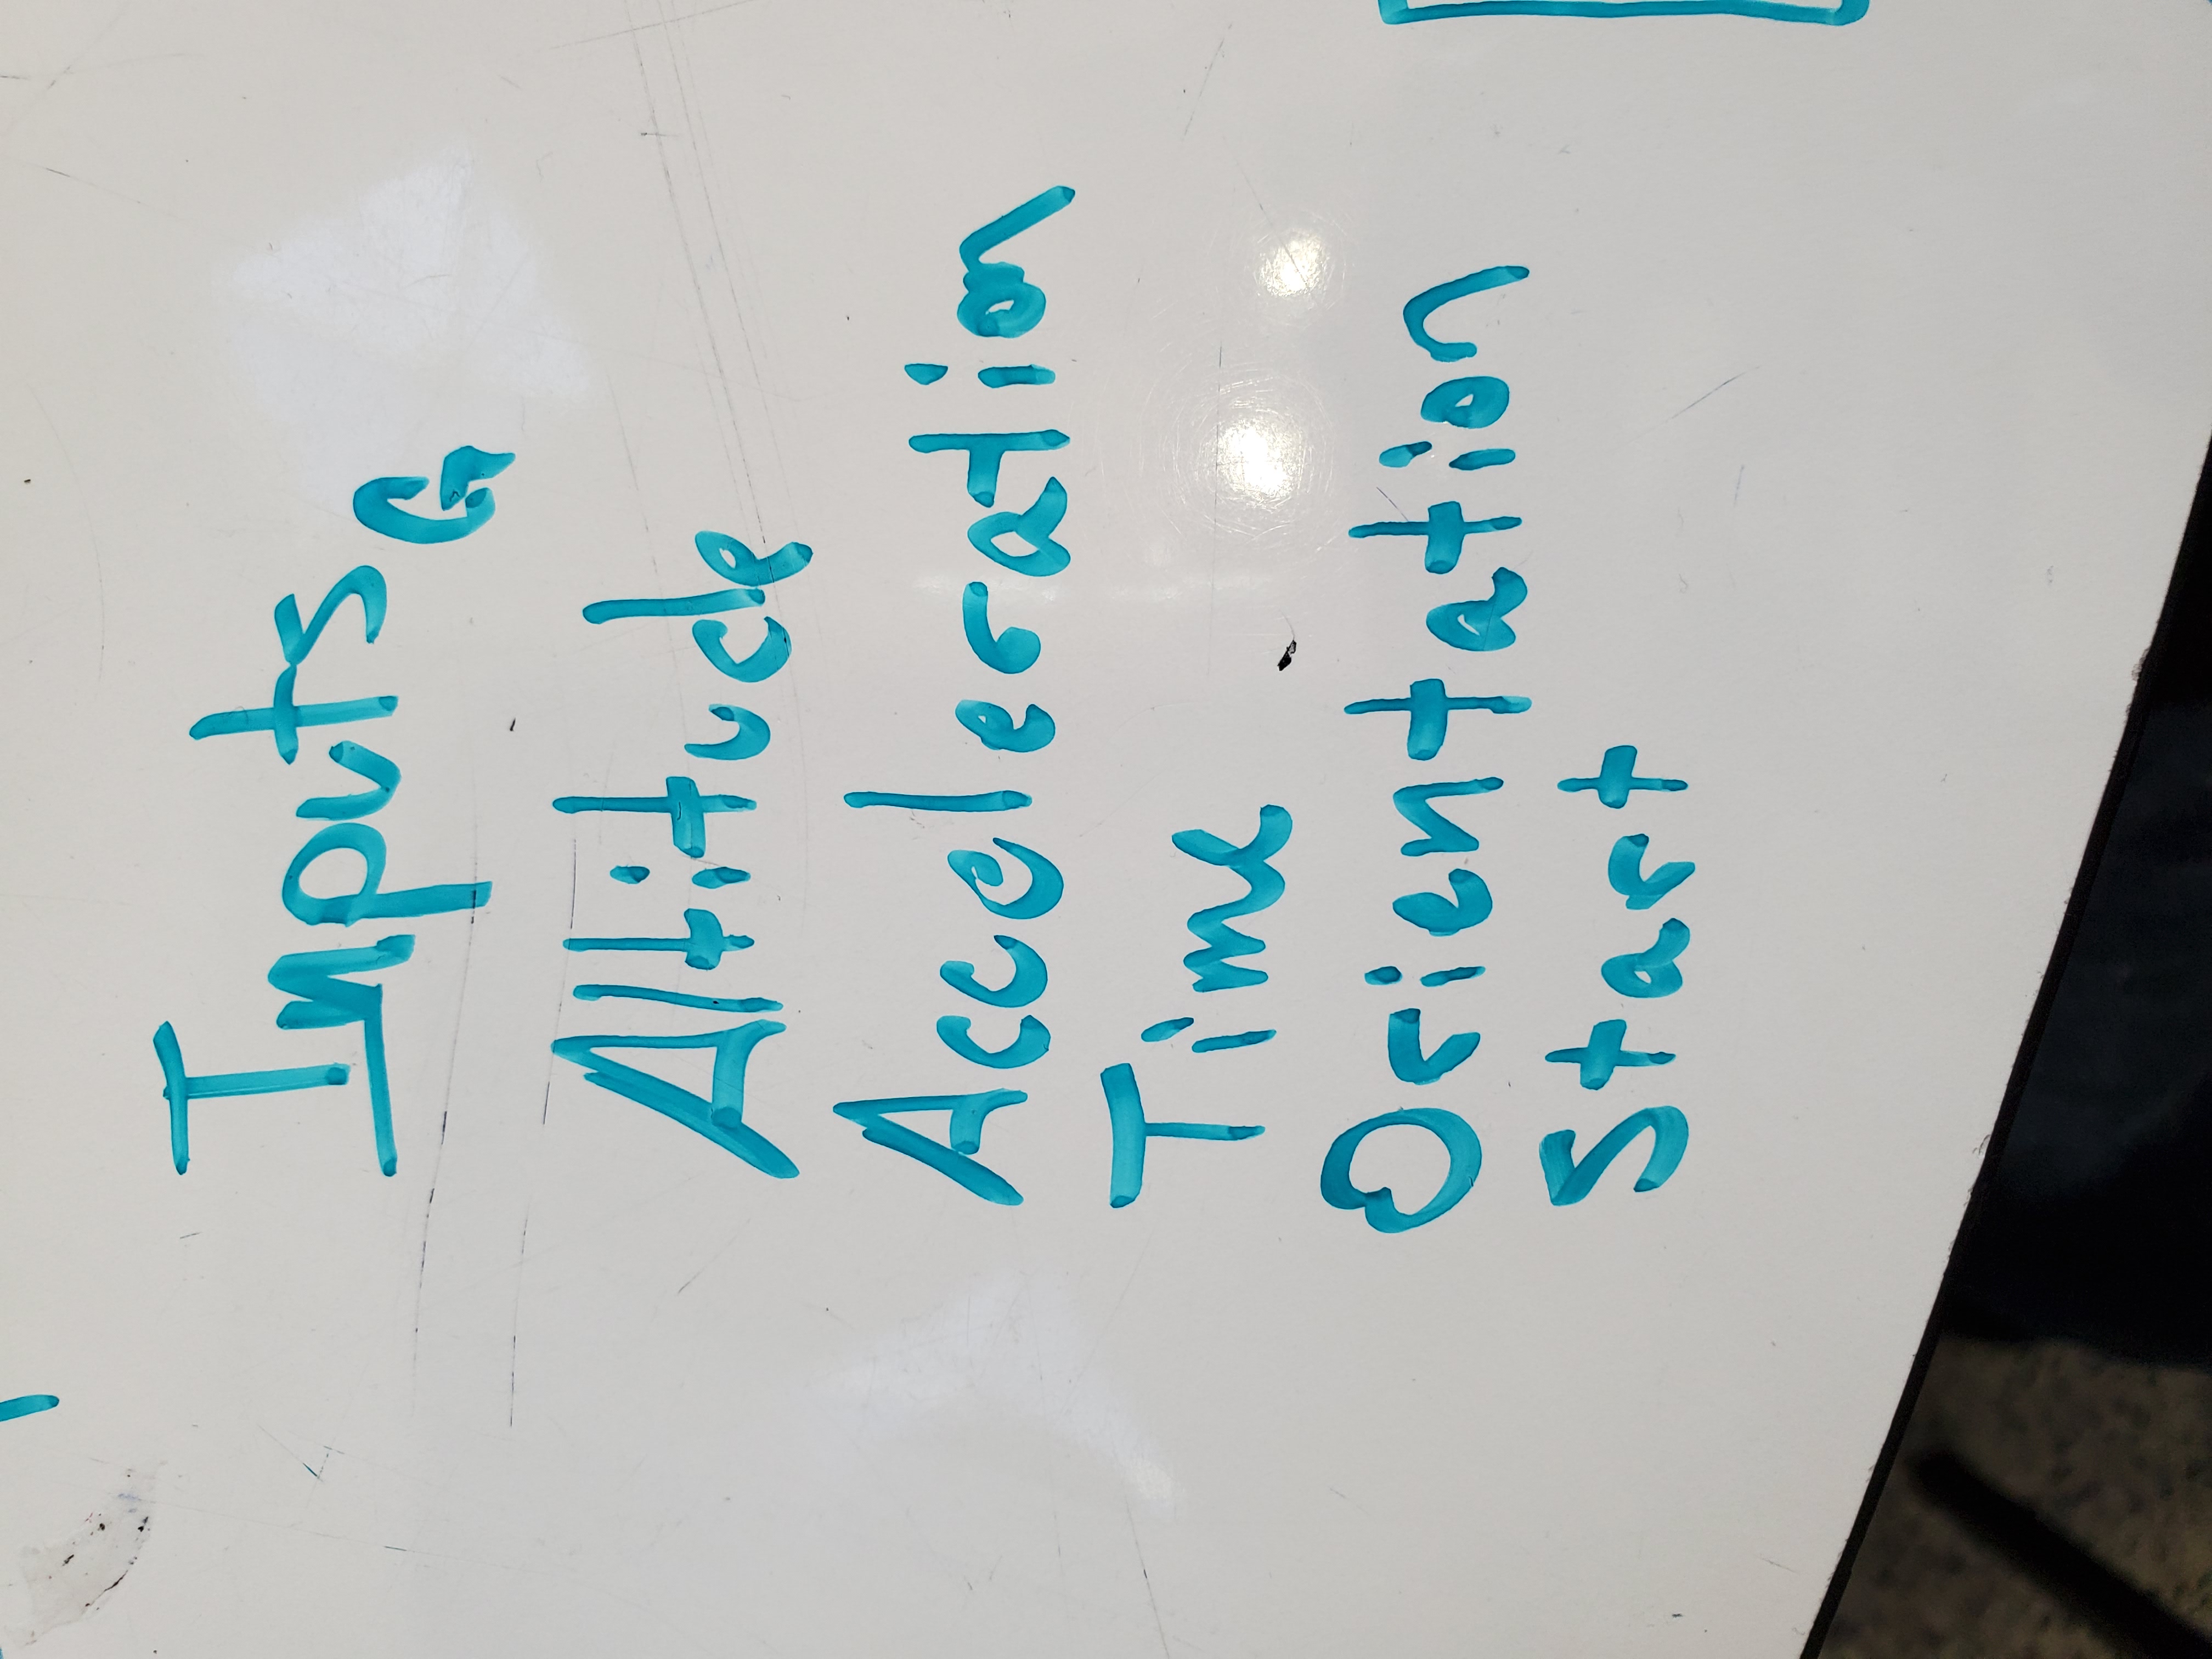 Inputs
G
Altitude
Acceleration
Time
Orientation
Start